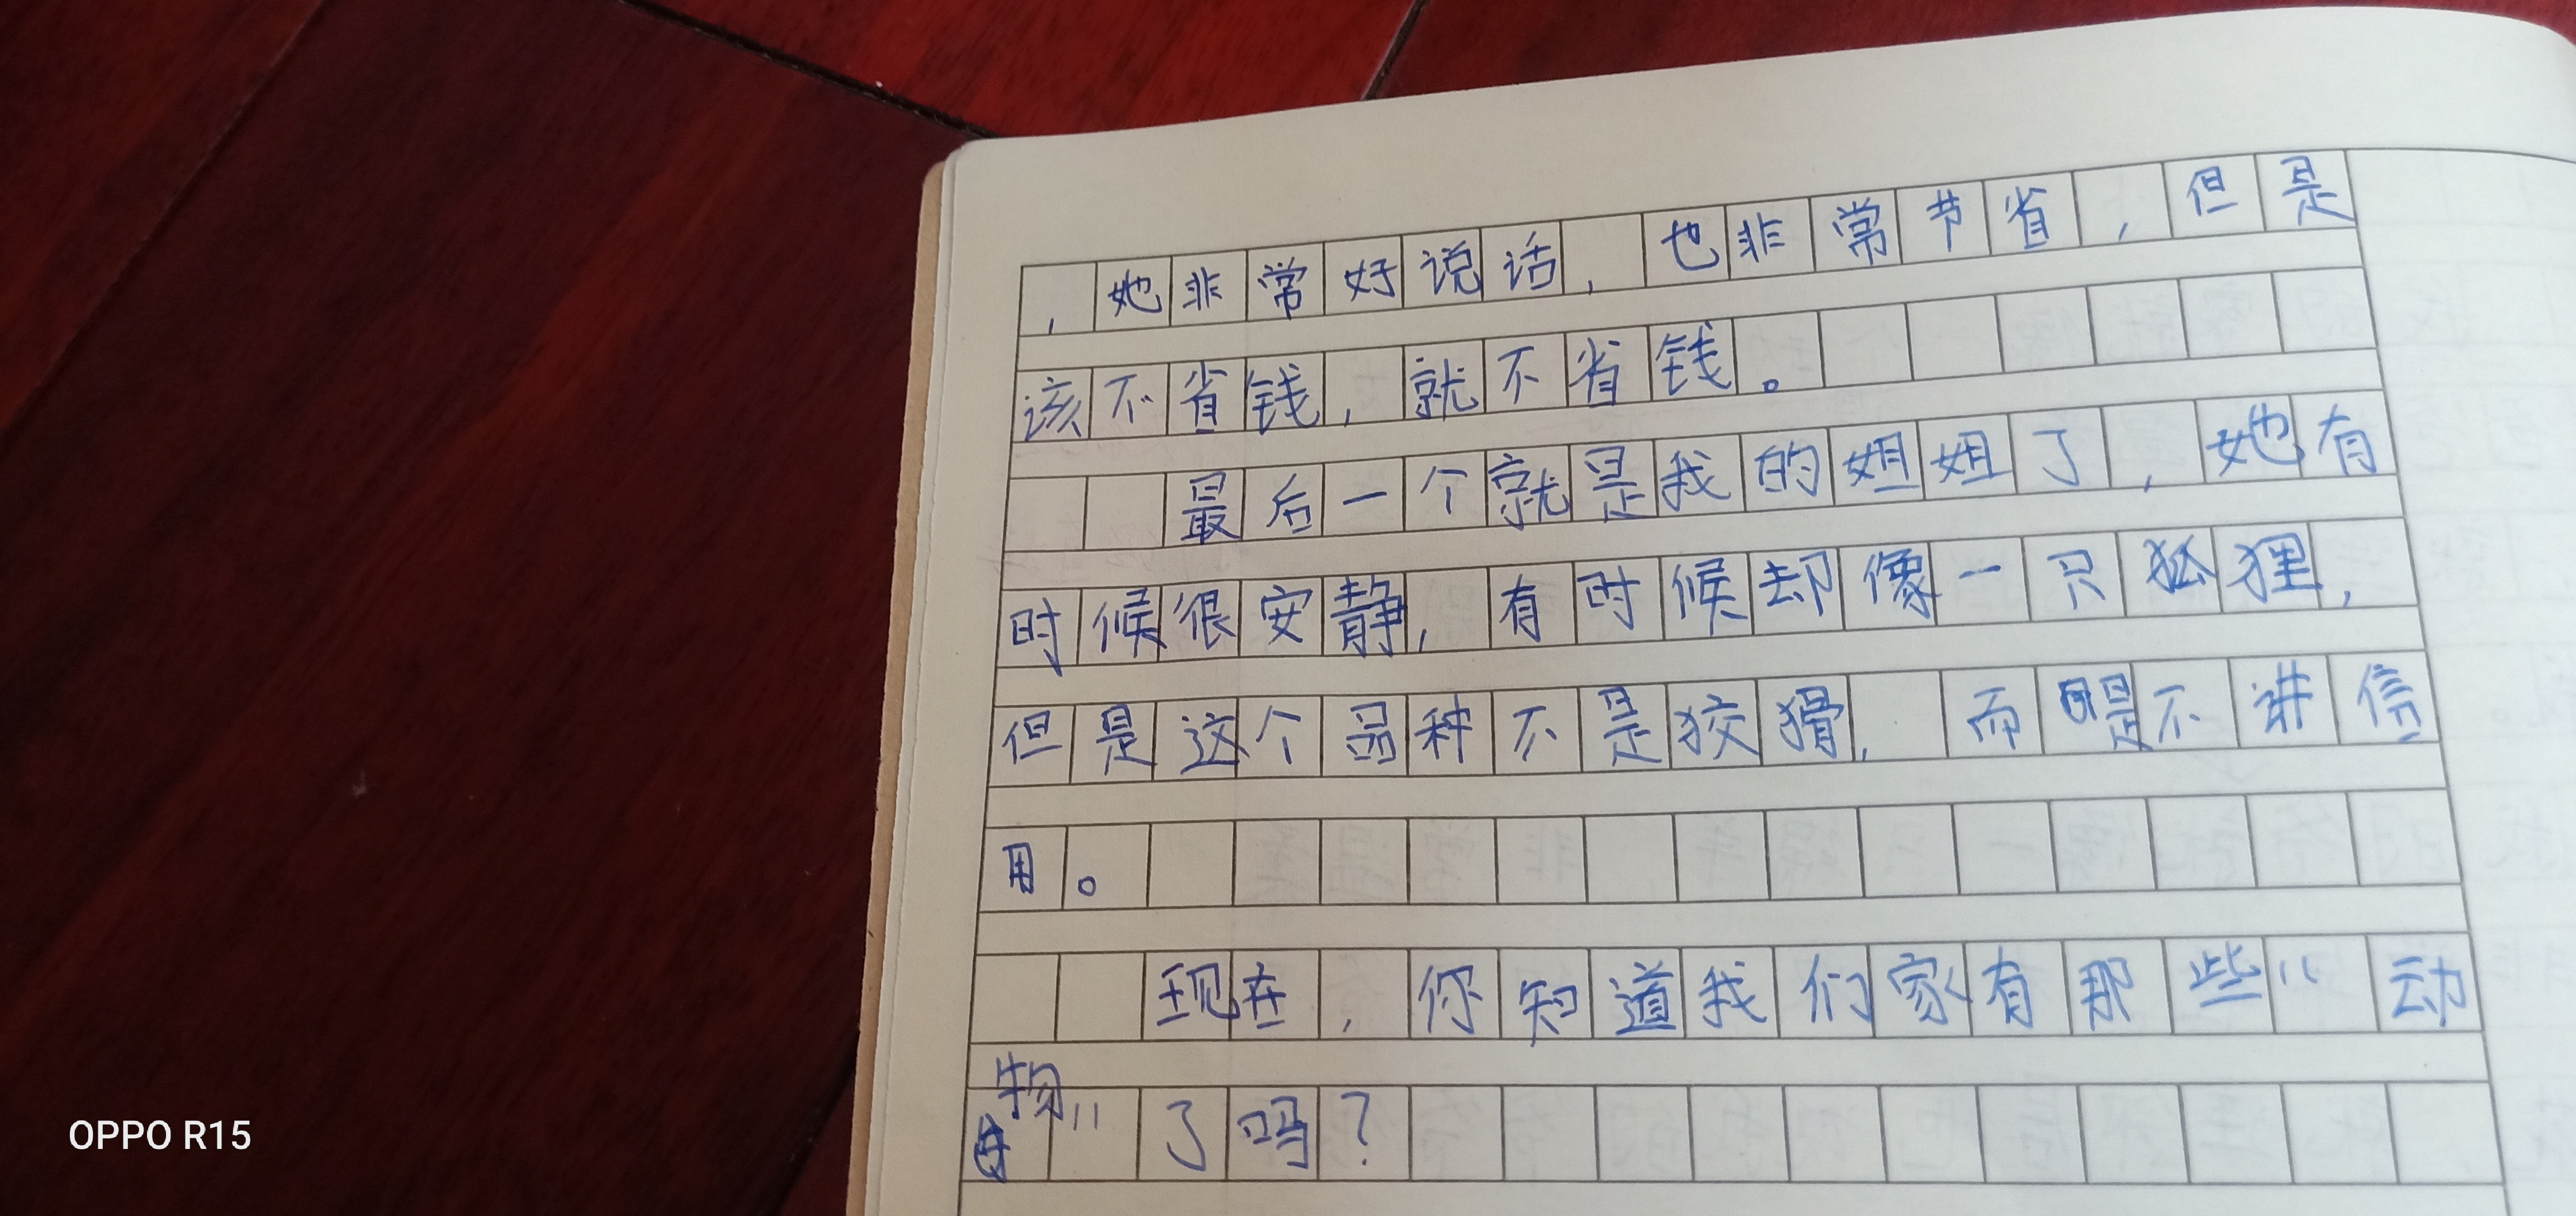 ，她非常好说话，也非常节省，但是
该不省钱，就不省钱。
最后一个就是我的姐姐了，她有
时候很安静，有时候却像一只狐狸，
但是这个品种不是狡猾，而是不讲信
用。
现在，你知道我们家有那些“动
物”了吗？
OPPO R15